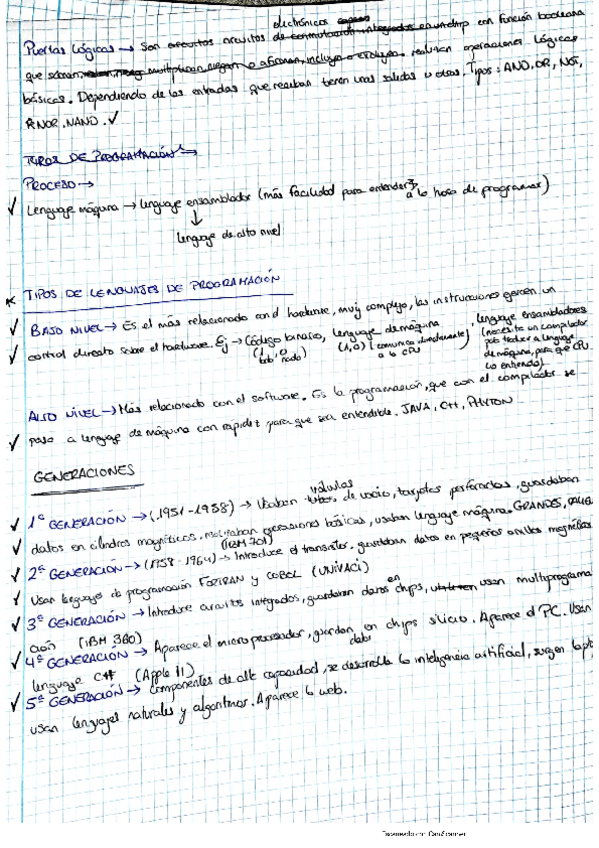 electrónicos
Puertas lógicas → Son circuitos con función booleana
que realizan operaciones lógicas
básicas. Dependiendo de las entradas que reciban tienen unas salidas u otras. Tipos: AND, OR, NOT,
NOR, NAND. ✓
TIPOS DE PROGRAMACIÓN →
PROCESO →
✓ Lenguaje máquina → lenguaje ensamblador (más facilidad para entender a la hora de programar)
↓
lenguaje de alto nivel
TIPOS DE LENGUAJES DE PROGRAMACIÓN
✓ BAJO NIVEL → Es el más relacionado con el hardware, muy complejo, las instrucciones ejercen un
✓ control directo sobre el hardware. Ej → Código binario, lenguaje de máquina, lenguaje ensambladores
(1,0) (comunica directamente a la CPU)
(necesita un compilador
para traducir a lenguaje
de máquina, para que CPU
lo entienda)
ALTO NIVEL → Más relacionado con el software. Es la programación, que con el compilador se
✓ pasa a lenguaje de máquina con rapidez para que sea entendible. JAVA, C++, PHYTON
GENERACIONES
válvulas
✓ 1ª GENERACIÓN → (1951-1958) → Usaban de vacío, tarjetas perforadas, guardaban
✓ datos en cilindros magnéticos, realizaban operaciones básicas, usaban lenguaje máquina. GRANDES,
(IBM 701)
✓ 2ª GENERACIÓN → (1958-1964) → Introduce el transistor, guardaban datos en pequeños anillos magnéticos
✓ Usan lenguajes de programación FORTRAN y COBOL (UNIVAC)
✓ 3ª GENERACIÓN → Introduce circuitos integrados, guardaban datos en chips, usan multiprograma
ción (IBM 360)
✓ 4ª GENERACIÓN → Aparece el microprocesador, guardan datos en chips silicio. Aparece el PC. Usan
lenguaje C# (Apple II)
✓ 5ª GENERACIÓN → Componentes de alta capacidad, se desarrolla la inteligencia artificial, surgen
usan lenguajes naturales y algoritmos. Aparece la web.
Escaneado con CamScanner